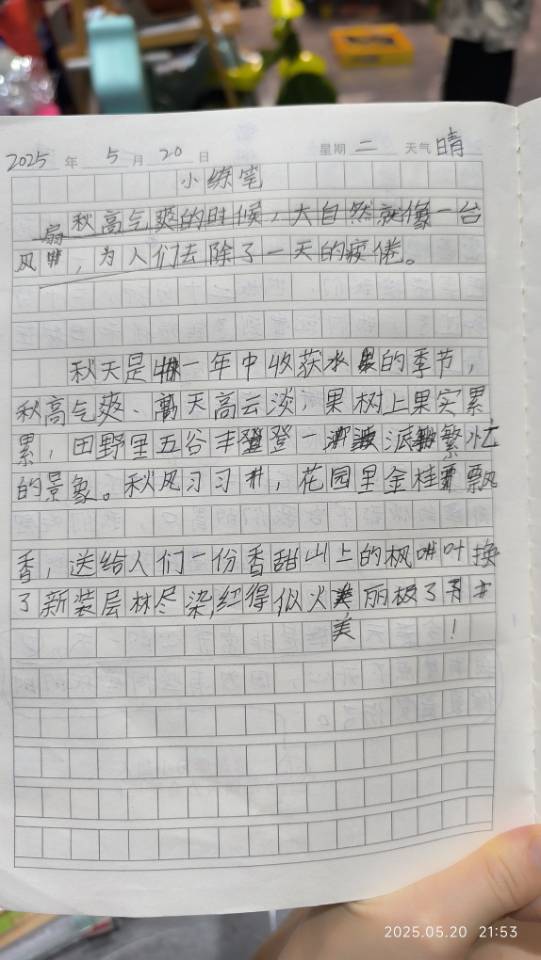 2025年5月20日 星期二 天气晴
小练笔
秋高气爽的时候，大自然就像一台
风扇，为人们去除了一天的疲倦。
秋天是一年中收获水果的季节，
秋高气爽、天高云淡，果树上果实累
累，田野里五谷丰登一派繁忙
的景象。秋风习习，花园里金桂飘
香，送给人们一份香甜山上的枫叶换
了新装层林尽染红得似火美丽极了
美！
2025.05.20 21:53